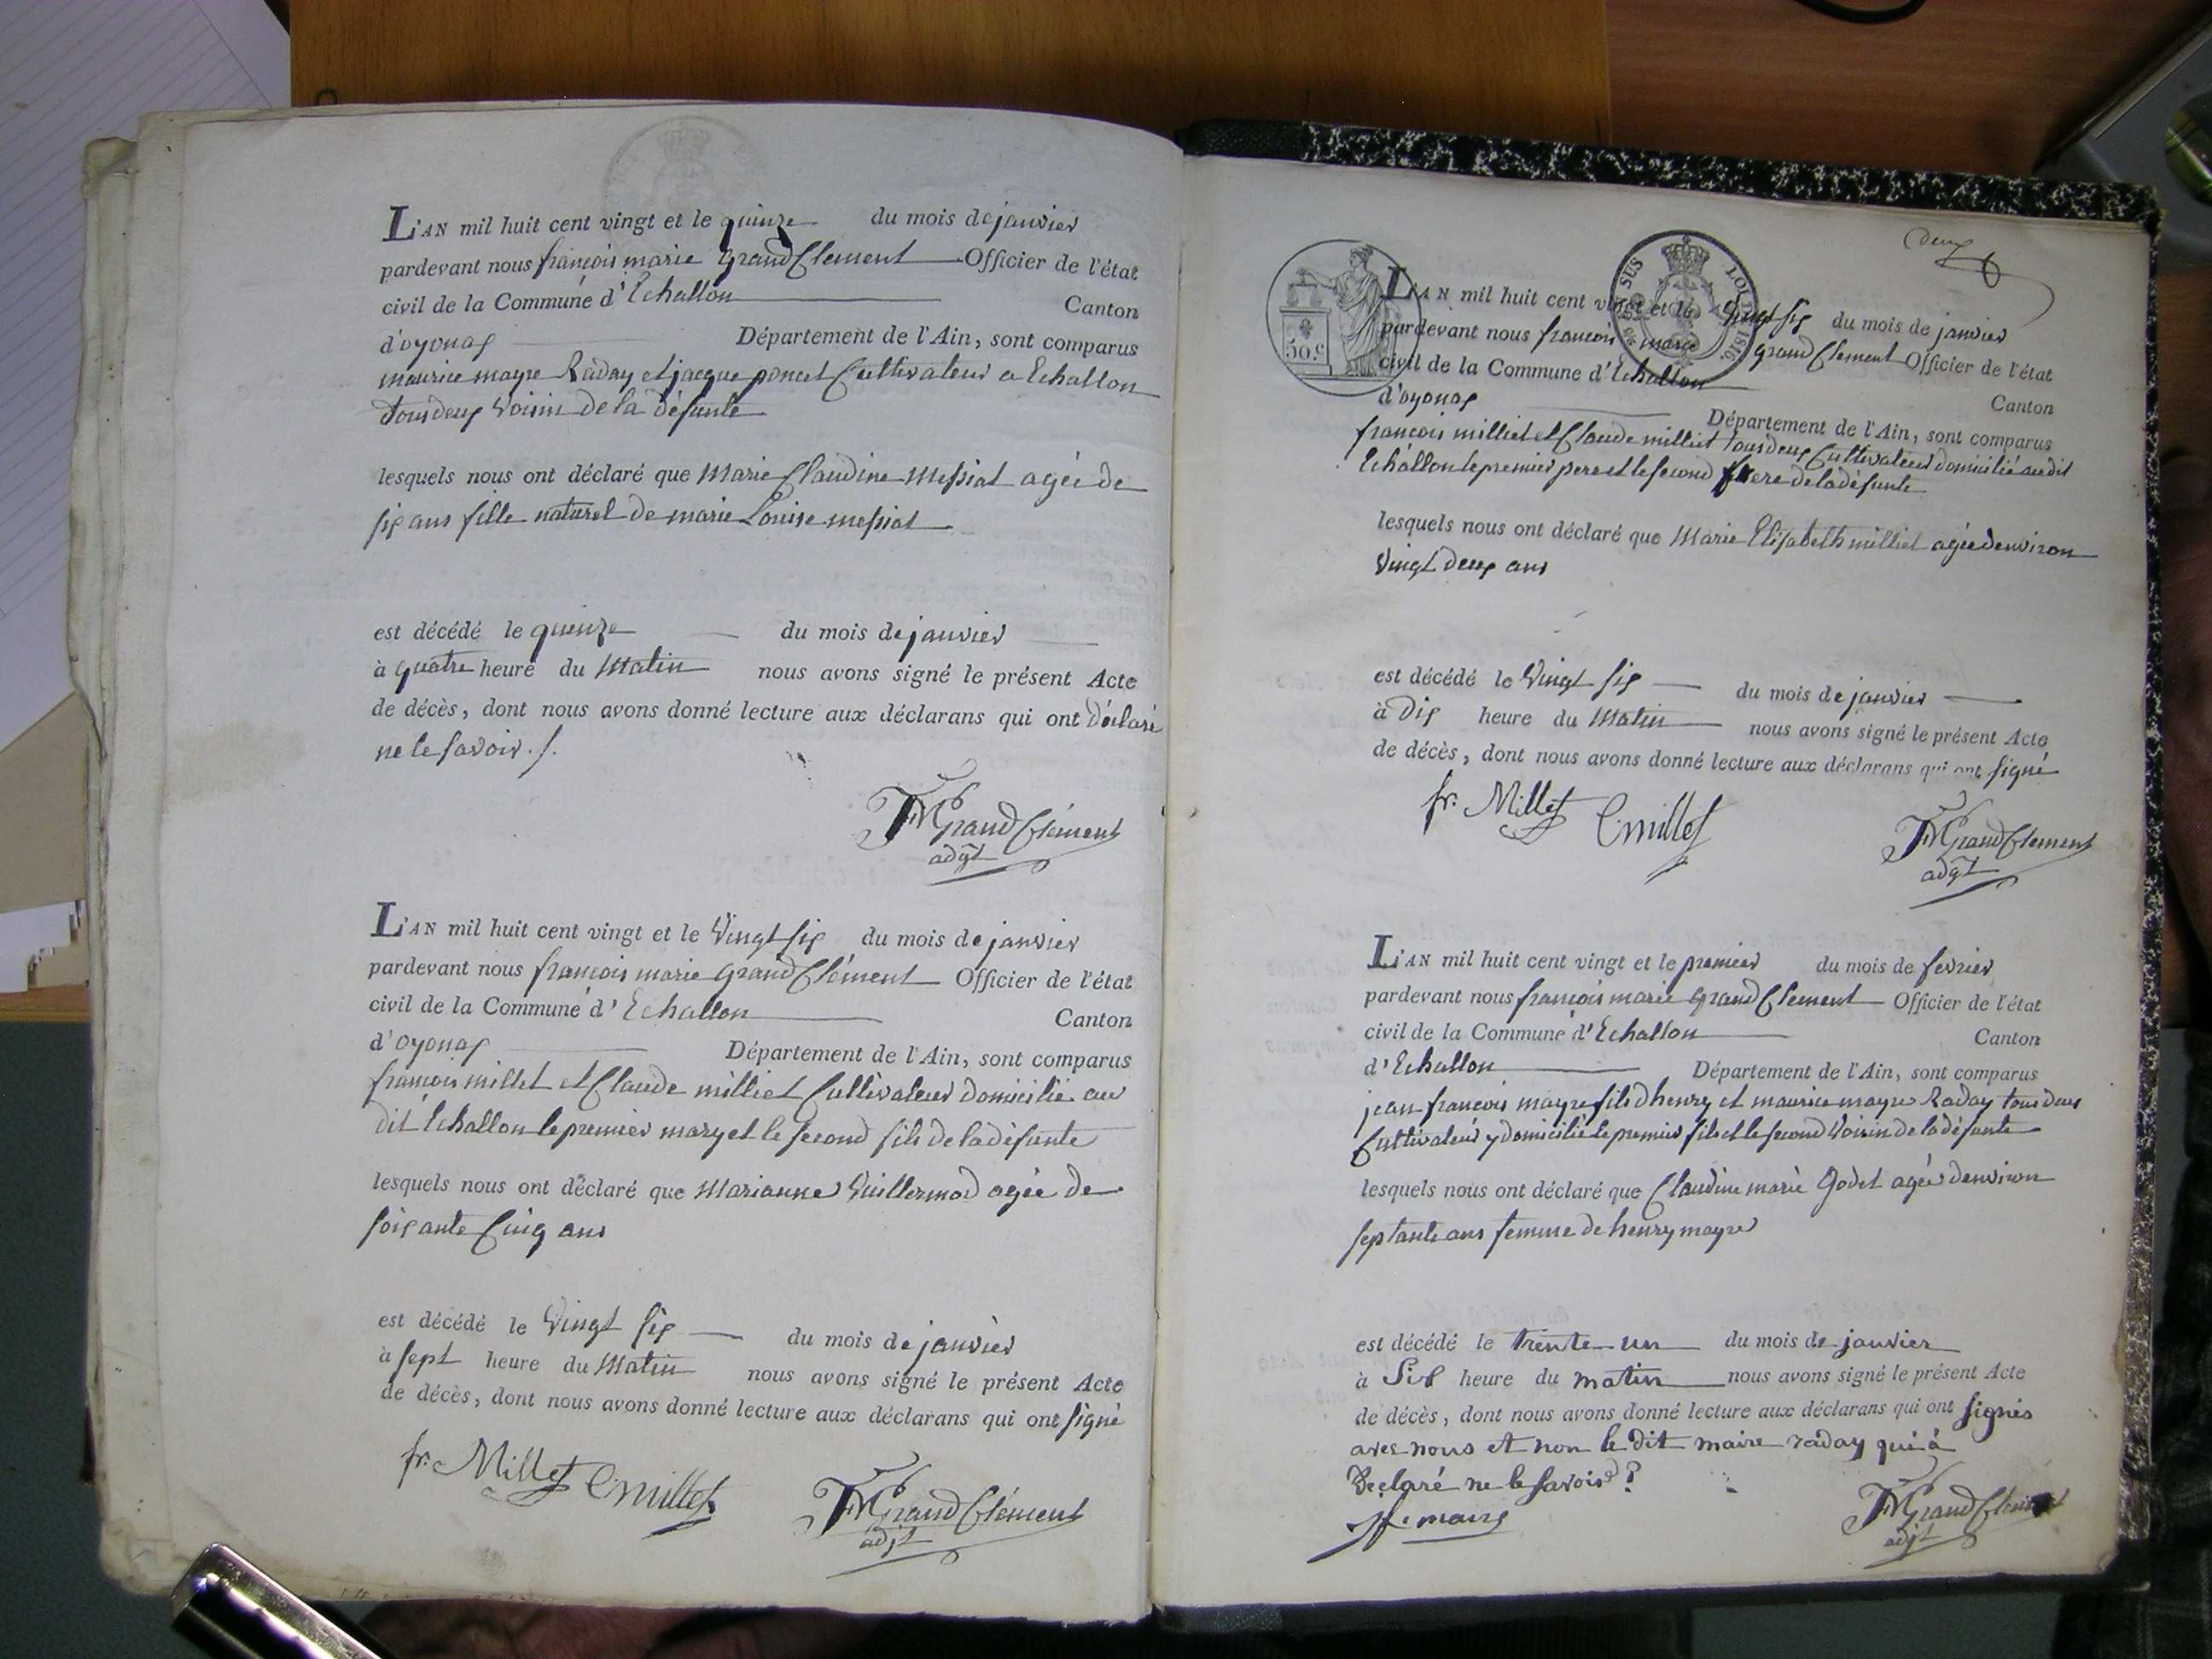 L'AN mil huit cent vingt et le quinze du mois de janvier
pardevant nous françois marie grand Clement Officier de l'état
civil de la Commune d'Echallon Canton
d'oyonax Département de l'Ain, sont comparus
maurice mayre Raday et jacque poncet Cultivateur a Echallon
tous deux Voisin de la défunte
lesquels nous ont déclaré que Marie Claudine Messiat agée de
six ans fille naturel de marie Louise messiat
est décédé le quinze du mois de janvier
à quatre heure du Matin nous avons signé le présent Acte
de décès, dont nous avons donné lecture aux déclarans qui ont Déclaré
ne le savoir.
FM Grand Clément
adjt
L'AN mil huit cent vingt et le Vingt six du mois de janvier
pardevant nous françois marie grand Clément Officier de l'état
civil de la Commune d'Echallon Canton
d'oyonax Département de l'Ain, sont comparus
françois millet et Claude milliet Cultivateur domicilié au
dit Echallon le premier mary et le second fils de la défunte
lesquels nous ont déclaré que Marianne Vuillermod agée de
soixante Cinq ans
est décédé le Vingt six du mois de janvier
à sept heure du Matin nous avons signé le présent Acte
de décès, dont nous avons donné lecture aux déclarans qui ont signé
fr. Millet C millet
FM Grand Clément
adjt
deux
SUS LOI 1816
50 c
L'AN mil huit cent vingt et le Vingt six du mois de janvier
pardevant nous françois marie grand Clement Officier de l'état
civil de la Commune d'Echallon Canton
d'oyonax Département de l'Ain, sont comparus
françois milliet et Claude milliet tous deux Cultivateur domicilié au dit
Echallon le premier pere et le second frere de la défunte
lesquels nous ont déclaré que Marie Elisabeth milliet agée denviron
Vingt deux ans
est décédé le Vingt six du mois de janvier
à Dix heure du Matin nous avons signé le présent Acte
de décès, dont nous avons donné lecture aux déclarans qui ont signé
fr. Millet C millet
FM Grand Clement
adjt
L'AN mil huit cent vingt et le premier du mois de fevrier
pardevant nous françois marie grand Clement Officier de l'état
civil de la Commune d'Echallon Canton
d'Echallon Département de l'Ain, sont comparus
jean françois mayre fils dhenry et maurice mayre Raday tous deux
Cultivateur y domicilié le premier fils et le second Voisin de la défunte
lesquels nous ont déclaré que Claudine marie Godet agée denviron
septante ans femme de henry mayre
est décédé le trente un du mois de janvier
à Six heure du matin nous avons signé le présent Acte
de décès, dont nous avons donné lecture aux déclarans qui ont signés
avec nous et non le dit maire raday qui à
Declaré ne le savoir
maire
FM Grand Clement
adjt